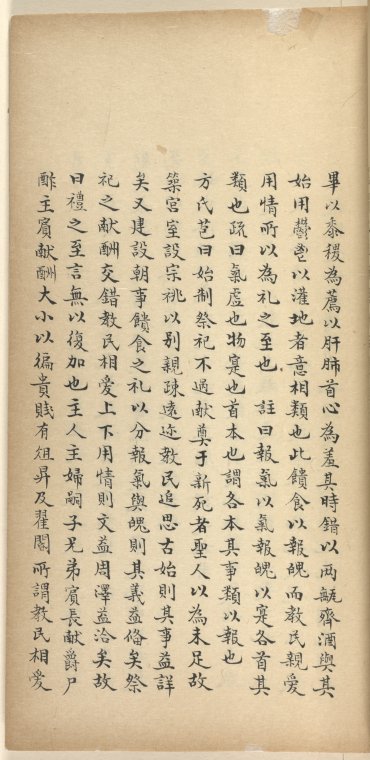 畢以黍稷為薦以肝肺首心為羞其時錯以两甒齊酒與其
始用鬱鬯以灌地者意相類也此饋食以報魄而教民親愛
用情所以為礼之至也 註曰報氣以氣報魄以寔各首其
類也疏曰氣虛也物寔也首本也謂各本其事類以報也
方氏苞曰始制祭祀不過献奠于新死者聖人以為未足故
築宫室設宗祧以别親疎遠迩教民追思古始則其事益詳
矣又建設朝事饋食之礼以分報氣與魄則其義益俻矣祭
祀之献酬交錯教民相爱上下用情則文益周澤益洽矣故
曰禮之至言無以復加也主人主婦嗣子兄弟賔長献爵尸
酢主賔献酬大小以徧貴賎有俎昇及翟閽所謂教民相爱